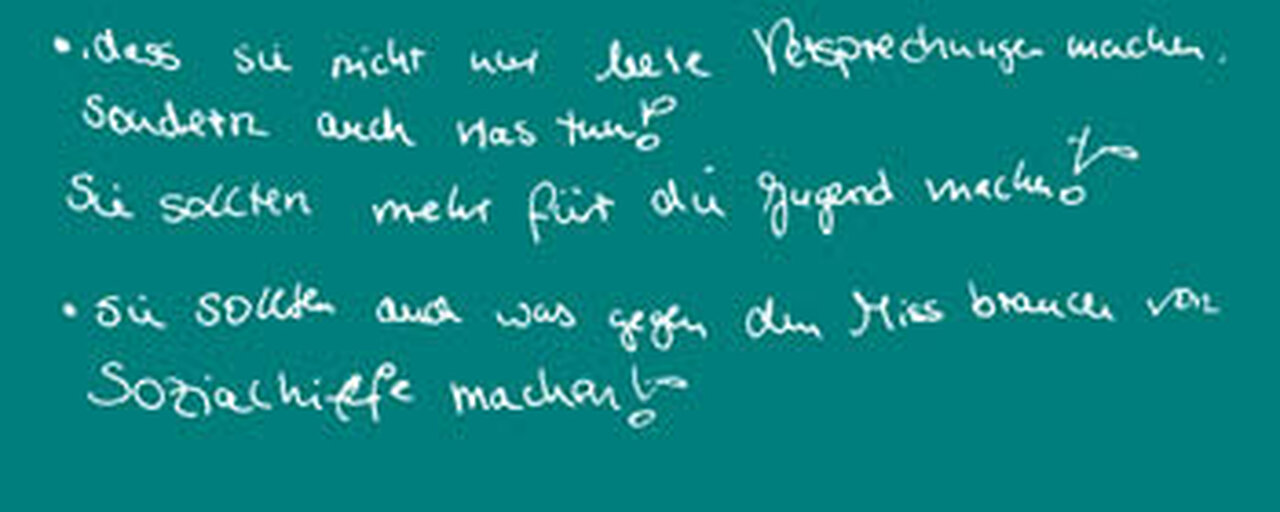 • dass sie nicht nur leere Versprechungen machen.
Sondern auch was tun!
Sie sollten mehr für die Jugend machen!
• sie sollten auch was gegen den Missbrauch von
Sozialhilfe machen!